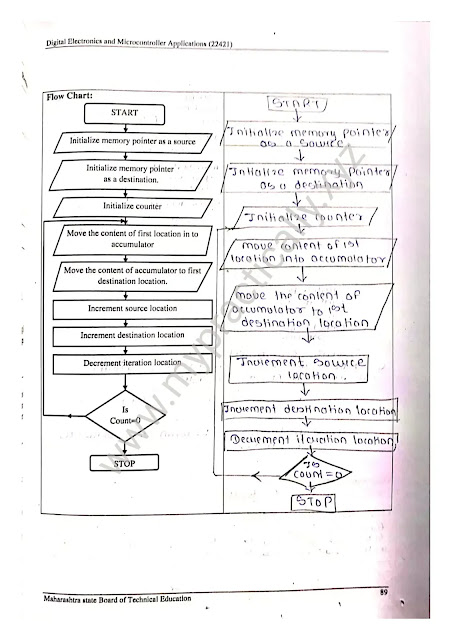 Digital Electronics and Microcontroller Applications (22421)
Flow Chart:
START
Initialize memory pointer as a source
Initialize memory pointer
as a destination.
Initialize counter
Move the content of first location in to
accumulator
Move the content of accumulator to first
destination location.
Increment source location
Increment destination location
Decrement iteration location
Is
Count=0
STOP
START
Initialize memory pointer
as a source.
Intialize memory pointer
as a destination
Initialize counter
move content of 1st
location into accumulator
move the content of
accumulator to 1st
destination location
Increment source
location.
Increment destination location
Decrement iteration location
Is
count = 0
STOP
www.mypractically.xyz
Maharashtra state Board of Technical Education
89